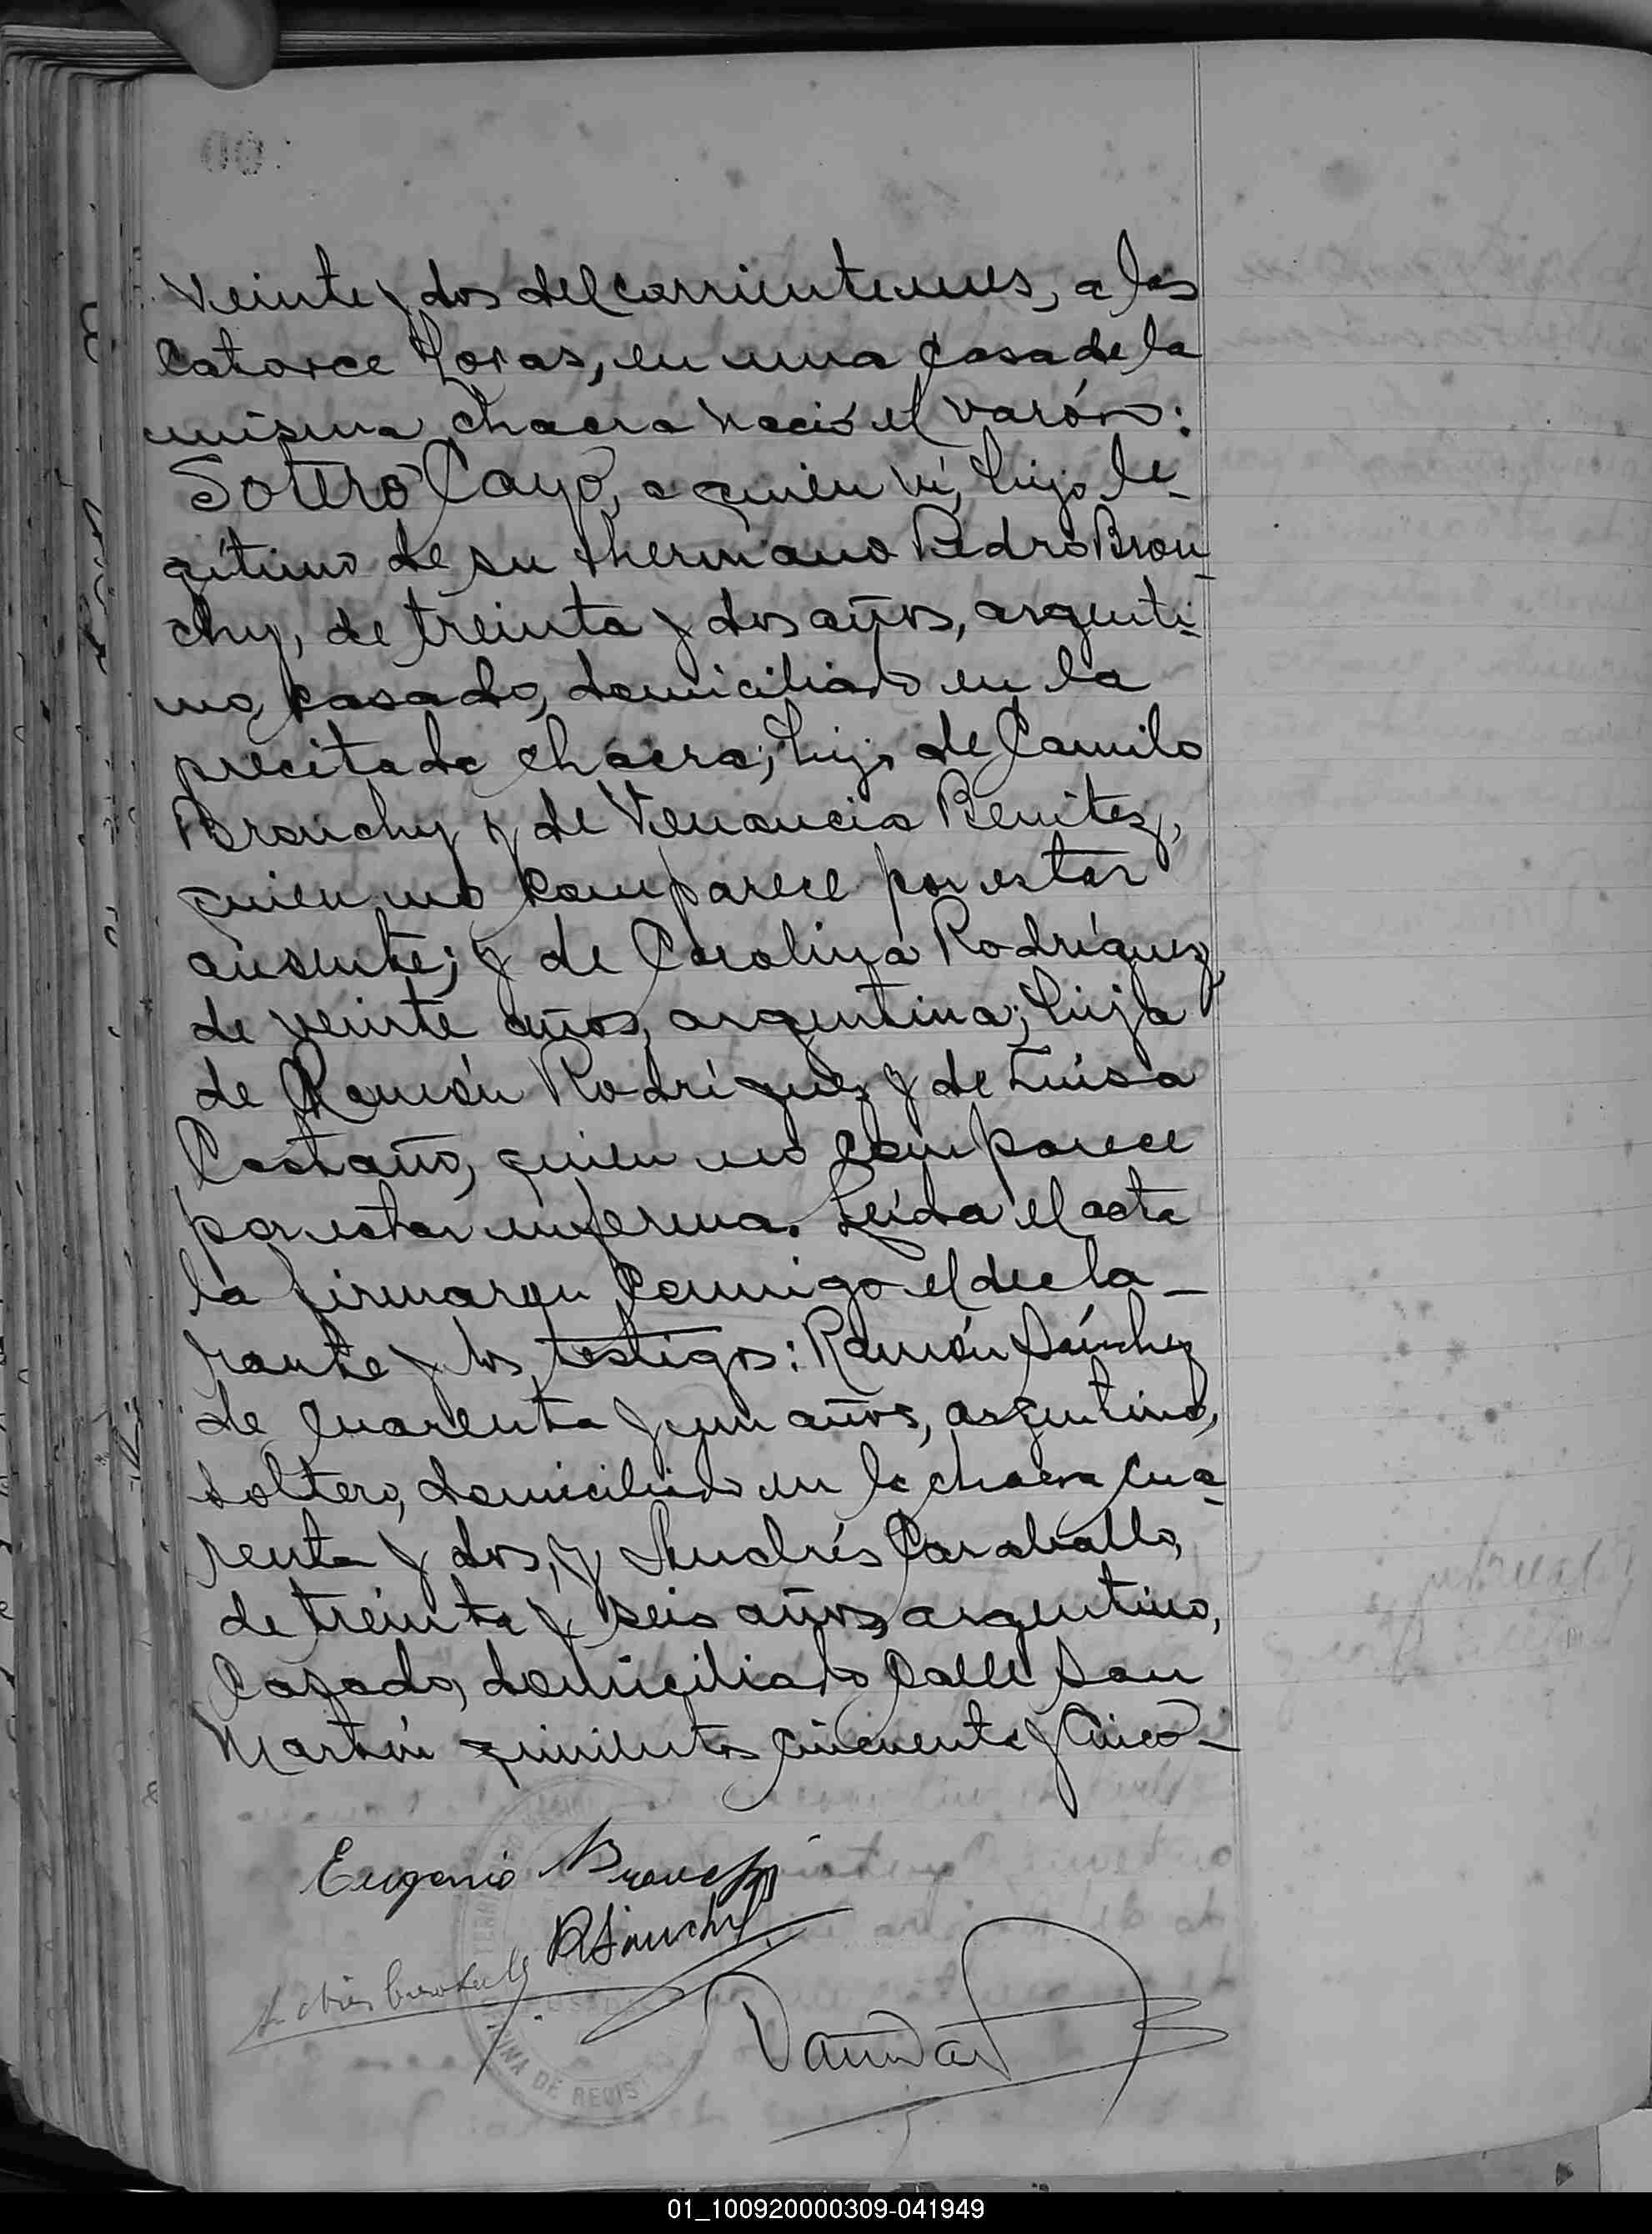 veinte y dos del corriente mes, a las
catorce horas, en una casa de la
misma chacra nació el varón:
Sotero Cayo, a quien vi, hijo le-
gítimo de su hermano Pedro Brou-
chy, de treinta y dos años, argenti-
no, casado, domiciliado en la
precitada chacra; hijo de Camilo
Brouchy y de Venancia Benitez,
quien no comparece por estar
ausente; y de Carolina Rodríguez
de veinte años, argentina; hija
de Ramón Rodríguez y de Luisa
Castaño, quien no comparece
por estar enferma. Leída el acta
la firmaron conmigo el decla-
rante y los testigos: Ramón Sánchez
de cuarenta y un años, argentino,
soltero, domiciliado en la chacra cua-
renta y dos, y Andrés Caraballo,
de treinta y seis años, argentino,
casado, domiciliado calle San
Martín quinientos cincuenta y cinco-
Eugenio Brouchy
RSánchez
01_100920000309-041949